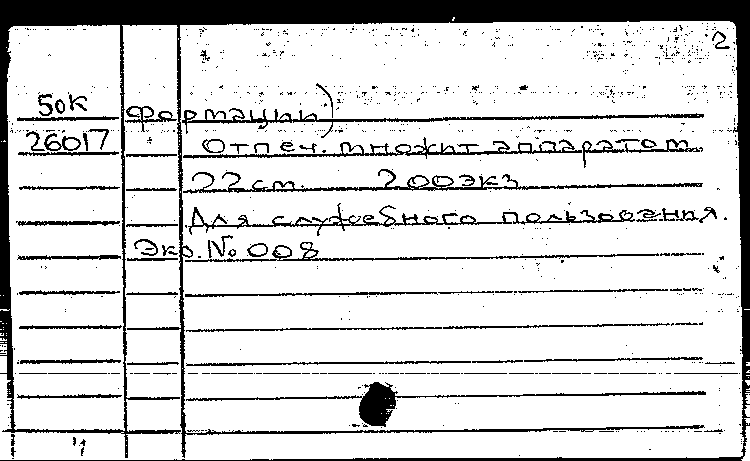 2
50К формации)
26017 Отпеч. множит аппаратом
22 см. 200экз
Для служебного пользования.
Экз. № 008